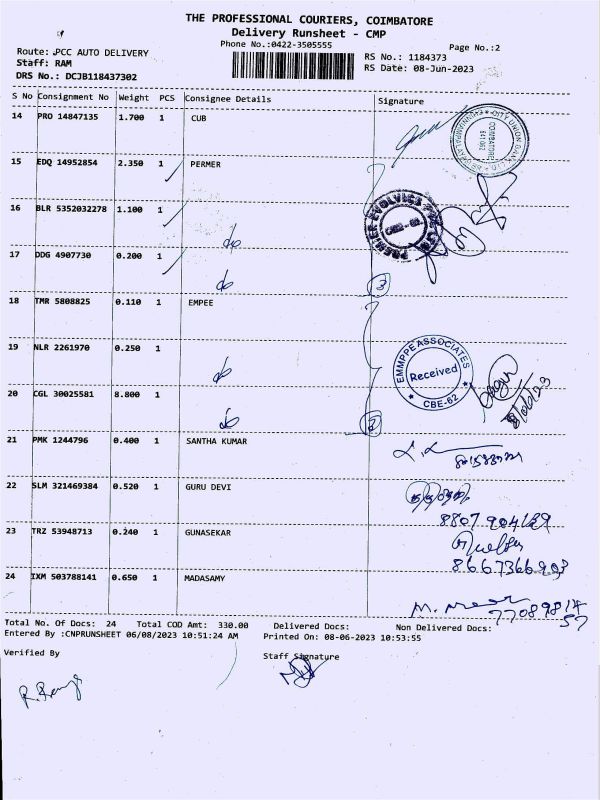 THE PROFESSIONAL COURIERS, COIMBATORE
Delivery Runsheet - CMP
Phone No.:0422-3505555
Page No.:2
Route: PCC AUTO DELIVERY
RS No.: 1184373
Staff: RAM
RS Date: 08-Jun-2023
DRS No.: DCJB118437302
S No Consignment No Weight PCS Consignee Details Signature
14 PRO 14847135 1.700 1 CUB
CITY UNION BANK LTD
COIMBATORE
641 062
15 EDQ 14952854 2.350 1 PERMER
16 BLR 5352032278 1.100 1 do
PREMIER EVOLVICS PVT LTD
CBE - 62
17 DDG 4907730 0.200 1 do 3
18 TMR 5808825 0.110 1 EMPEE
19 NLR 2261970 0.250 1 do
EMMPPE ASSOCIATES
Received
CBE-62
20 CGL 30025581 8.800 1 do
8/06/23
21 PMK 1244796 0.400 1 SANTHA KUMAR
22 SLM 321469384 0.520 1 GURU DEVI
23 TRZ 53948713 0.240 1 GUNASEKAR
8667366903
24 IXM 503788141 0.650 1 MADASAMY
77089814
57
Total No. Of Docs: 24 Total COD Amt: 330.00 Delivered Docs: Non Delivered Docs:
Entered By :CNPRUNSHEET 06/08/2023 10:51:24 AM Printed On: 08-06-2023 10:53:55
Verified By Staff Signature